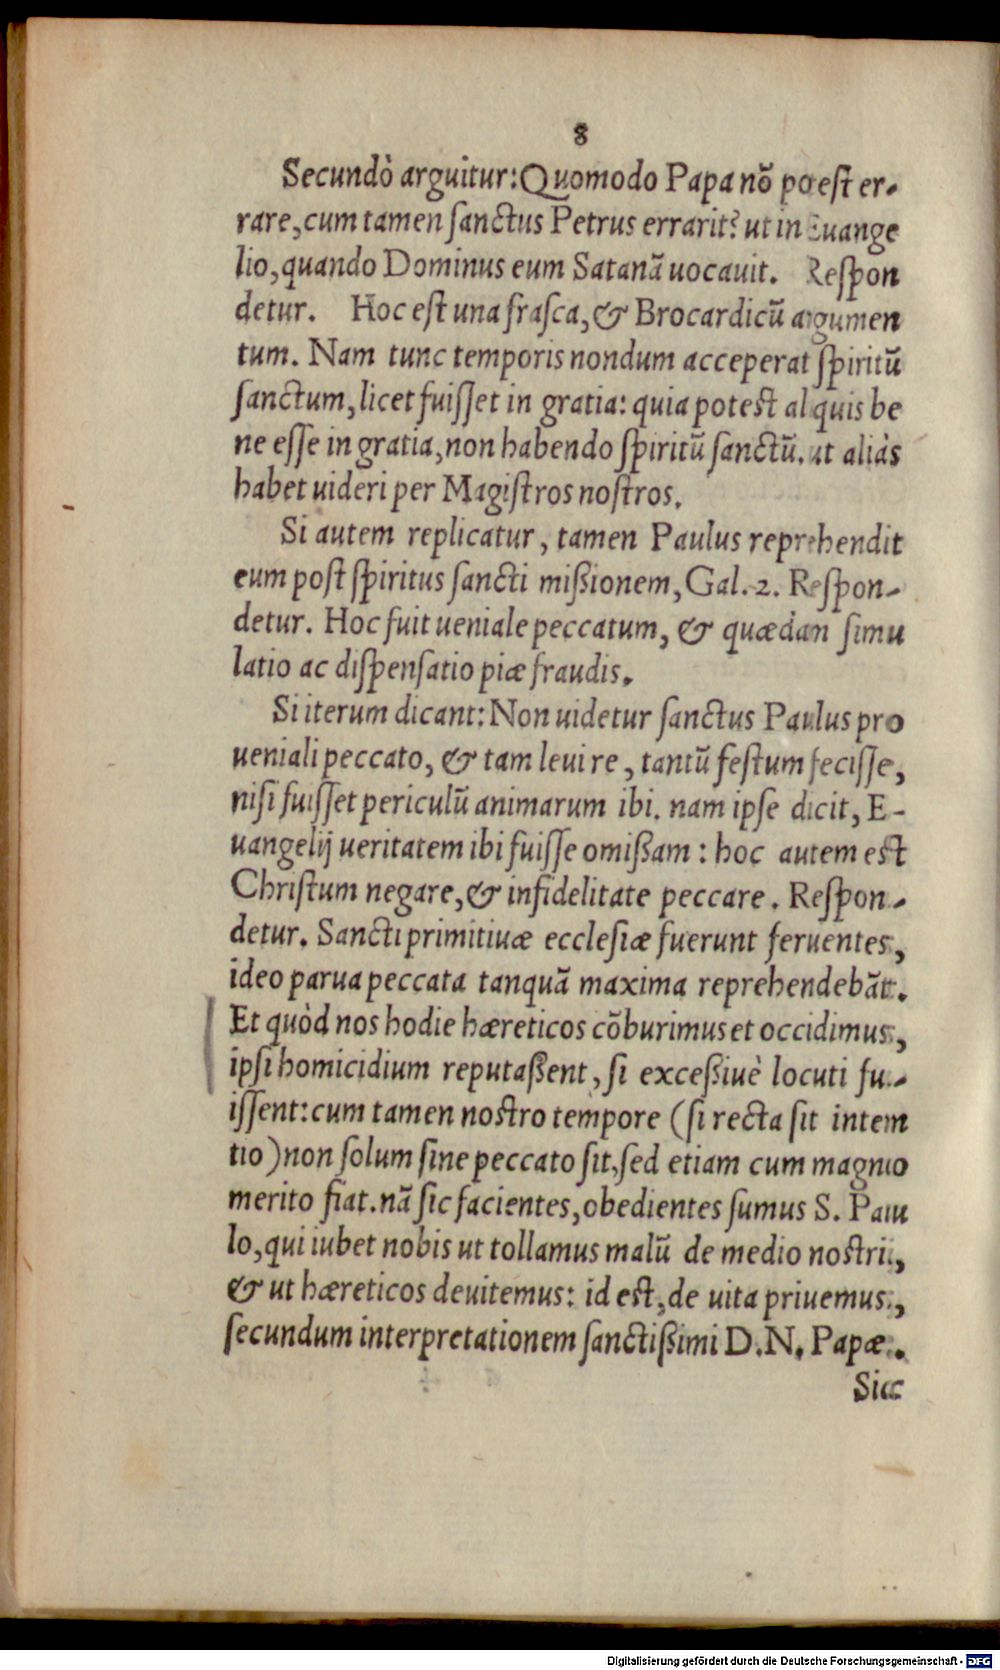 8
Secundò arguitur: Quomodo Papa nõ potest er-
rare, cum tamen ſanctus Petrus errarit? ut in Euange
lio, quando Dominus eum Satanã uocauit. Reſpon
detur. Hoc est una fraſca, & Brocardicũ argumen
tum. Nam tunc temporis nondum acceperat ſpiritũ
ſanctum, licet fuiſſet in gratia: quia potest aliquis be
ne eſſe in gratia, non habendo ſpiritũ ſanctũ. ut aliàs
habet uideri per Magiſtros noſtros.
Si autem replicatur, tamen Paulus reprehendit
eum poſt ſpiritus ſancti mißionem, Gal. 2. Reſpon-
detur. Hoc fuit ueniale peccatum, & quædan ſimu
latio ac diſpenſatio piæ fraudis.
Si iterum dicant: Non uidetur ſanctus Paulus pro
ueniali peccato, & tam leui re, tantũ feſtum feciſſe,
niſi fuiſſet periculũ animarum ibi. nam ipſe dicit, E-
uangelij ueritatem ibi fuiſſe omißam: hoc autem est
Chriſtum negare, & infidelitate peccare. Reſpon-
detur. Sancti primitiuæ eccleſiæ fuerunt feruentes,
ideo parua peccata tanquã maxima reprehendebãt.
Et quòd nos hodie hæreticos cõburimus et occidimus,
ipſi homicidium reputaßent, ſi exceßiuè locuti fu-
iſſent: cum tamen noſtro tempore (ſi recta ſit inten
tio) non ſolum ſine peccato ſit, ſed etiam cum magno
merito fiat. nã ſic facientes, obedientes ſumus S. Pau
lo, qui iubet nobis ut tollamus malũ de medio noſtri,
& ut hæreticos deuitemus: id est, de uita priuemus,
ſecundum interpretationem ſanctißimi D. N. Papæ.
Sic
Digitalisierung gefördert durch die Deutsche Forschungsgemeinschaft - DFG